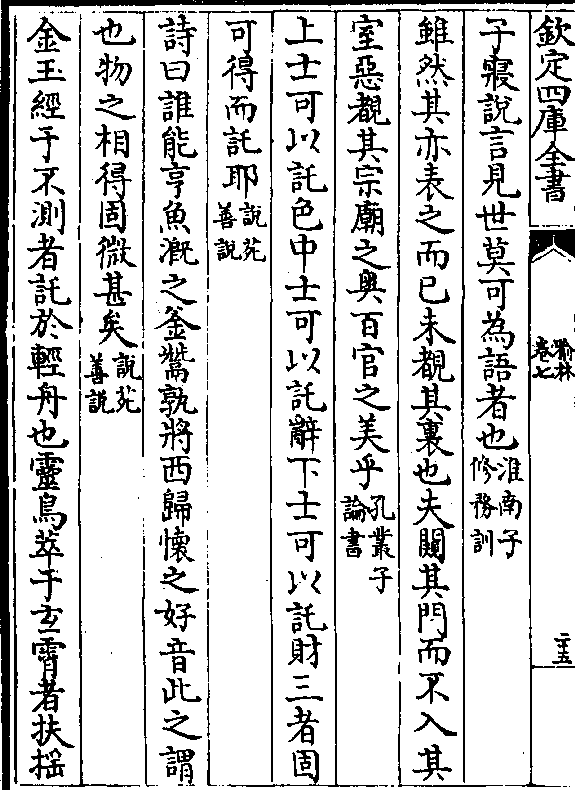 欽定四庫全書
喻林
卷七
二十五
子寢說言見世莫可為語者也淮南子
修務訓
雖然其亦表之而已未覩其裏也夫闚其門而不入其
室惡覩其宗廟之奥百官之美乎孔叢子
論書
上士可以託色中士可以託辭下士可以託財三者固
可得而託耶說苑
善說
詩曰誰能亨魚溉之釡鬵孰將西歸懷之好音此之謂
也物之相得固微甚矣說苑
善說
金玉經于不測者託於輕舟也靈烏萃于玄霄者扶揺